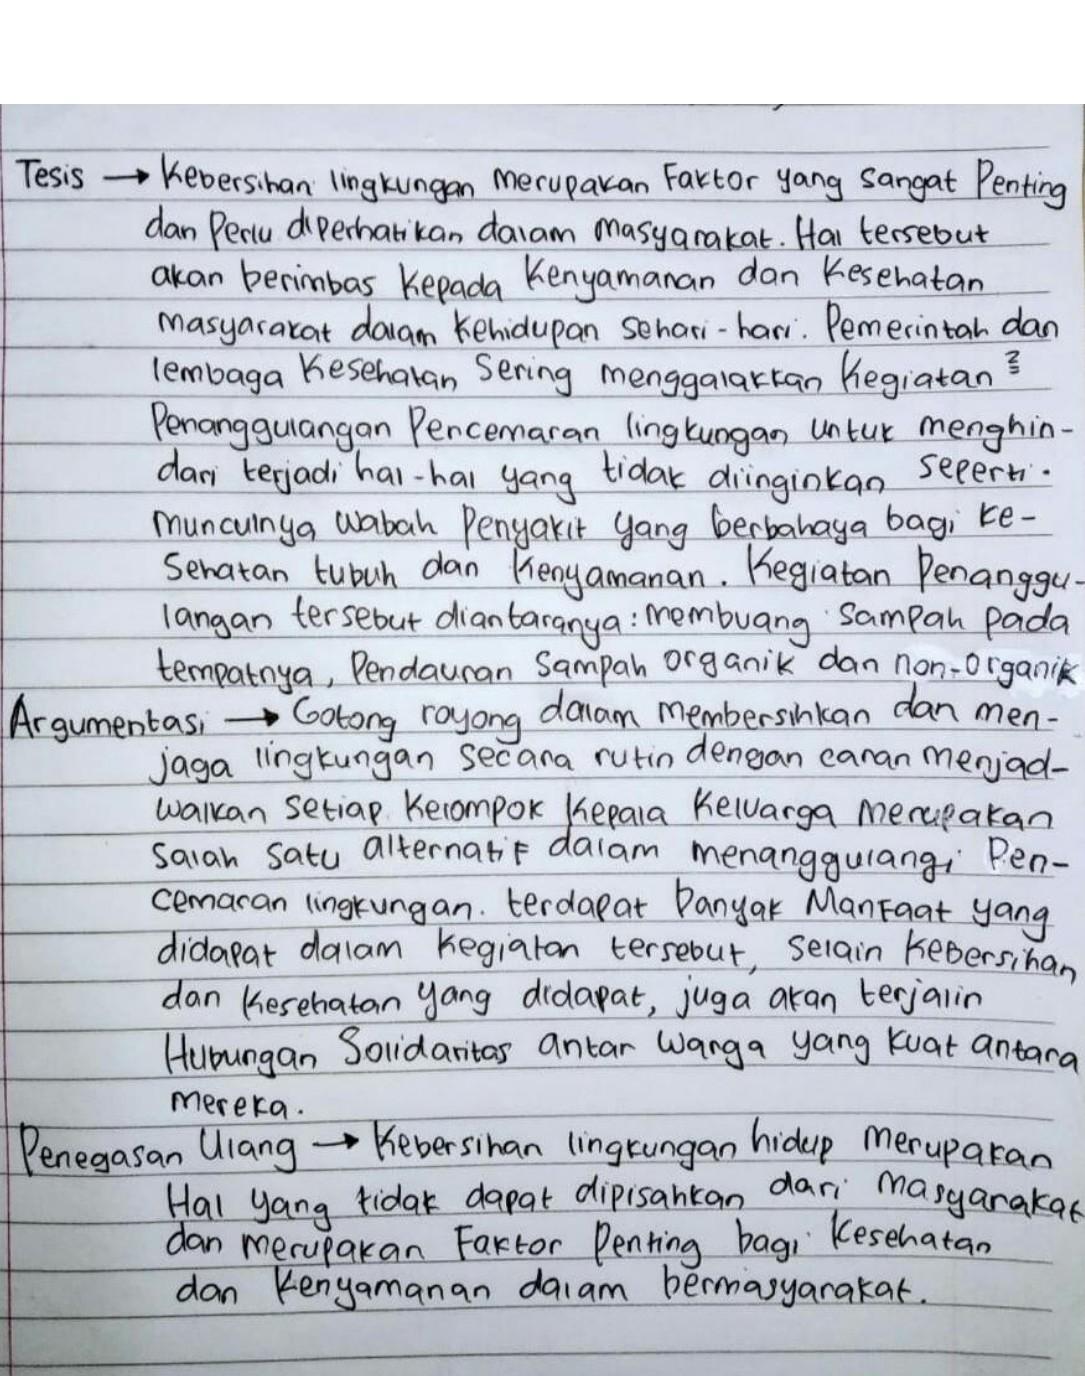 Tesis → Kebersihan lingkungan merupakan Faktor yang sangat Penting
dan Perlu diperhatikan dalam masyarakat. Hal tersebut
akan berimbas kepada kenyamanan dan kesehatan
masyarakat dalam kehidupan sehari-hari. Pemerintah dan
lembaga kesehatan sering menggalakkan kegiatan
Penanggulangan Pencemaran lingkungan untuk menghin-
dari terjadi hal-hal yang tidak diinginkan seperti
munculnya wabah Penyakit yang berbahaya bagi ke-
sehatan tubuh dan kenyamanan. Kegiatan Penanggu-
langan tersebut diantaranya: membuang sampah pada
tempatnya, Pendauran sampah organik dan non-organik
Argumentasi → Gotong royong dalam membersihkan dan men-
jaga lingkungan secara rutin dengan caran menjad-
walkan setiap kelompok kepala keluarga merupakan
salah satu alternatif dalam menanggulangi Pen-
cemaran lingkungan. terdapat banyak Manfaat yang
didapat dalam kegiatan tersebut, selain kebersihan
dan kesehatan yang didapat, juga akan terjalin
Hubungan Solidaritas antar warga yang kuat antara
mereka.
Penegasan Ulang → Kebersihan lingkungan hidup merupakan
Hal yang tidak dapat dipisahkan dari masyarakat
dan merupakan Faktor Penting bagi kesehatan
dan kenyamanan dalam bermasyarakat.